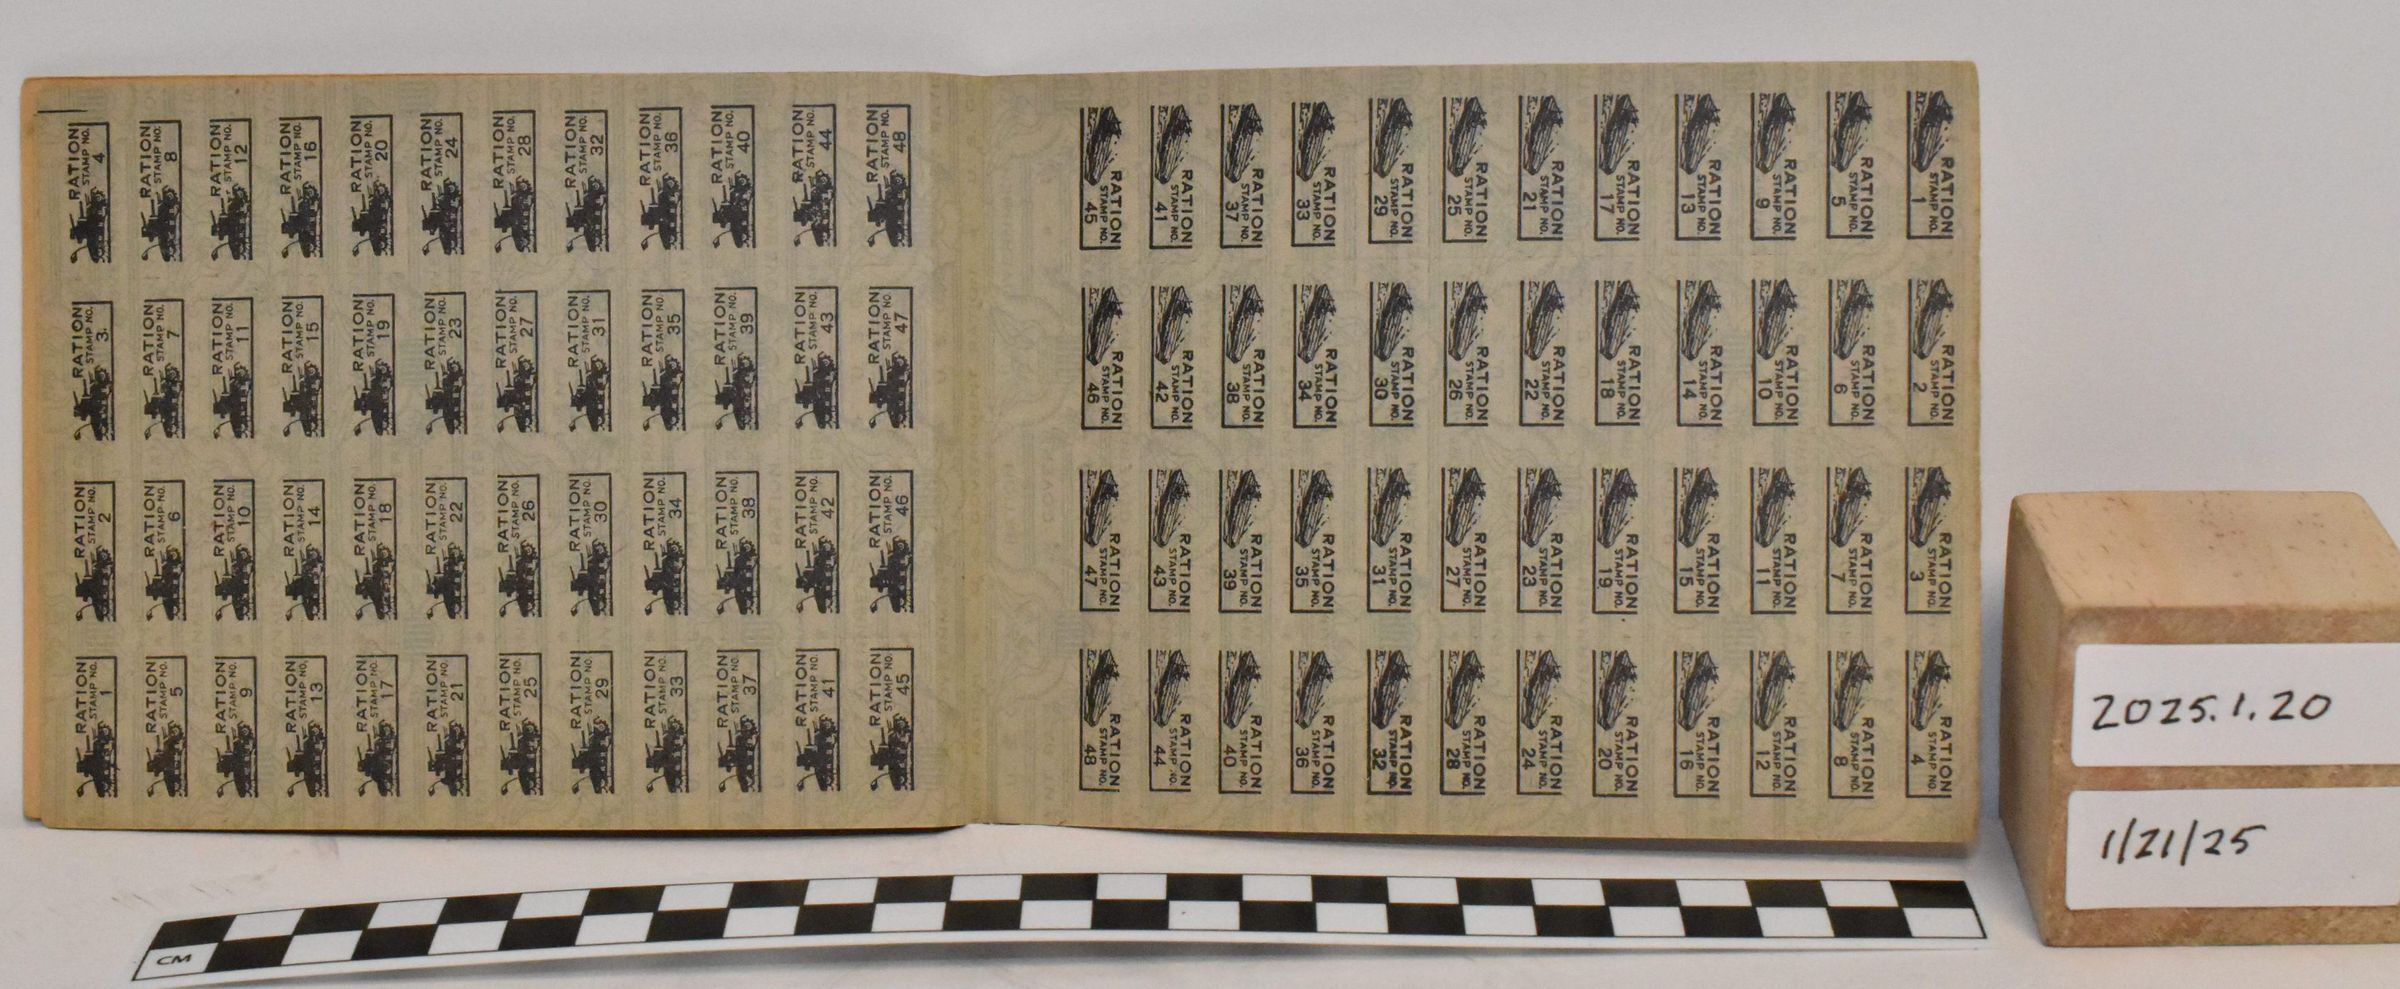 RATION RATION RATION RATION
STAMP NO. STAMP NO. STAMP NO. STAMP NO.
1 2 3 4
RATION RATION RATION RATION
STAMP NO. STAMP NO. STAMP NO. STAMP NO.
5 6 7 8
RATION RATION RATION RATION
STAMP NO. STAMP NO. STAMP NO. STAMP NO.
9 10 11 12
RATION RATION RATION RATION
STAMP NO. STAMP NO. STAMP NO. STAMP NO.
13 14 15 16
RATION RATION RATION RATION
STAMP NO. STAMP NO. STAMP NO. STAMP NO.
17 18 19 20
RATION RATION RATION RATION
STAMP NO. STAMP NO. STAMP NO. STAMP NO.
21 22 23 24
RATION RATION RATION RATION
STAMP NO. STAMP NO. STAMP NO. STAMP NO.
25 26 27 28
RATION RATION RATION RATION
STAMP NO. STAMP NO. STAMP NO. STAMP NO.
29 30 31 32
RATION RATION RATION RATION
STAMP NO. STAMP NO. STAMP NO. STAMP NO.
33 34 35 36
RATION RATION RATION RATION
STAMP NO. STAMP NO. STAMP NO. STAMP NO.
37 38 39 40
RATION RATION RATION RATION
STAMP NO. STAMP NO. STAMP NO. STAMP NO.
41 42 43 44
RATION RATION RATION RATION
STAMP NO. STAMP NO. STAMP NO. STAMP NO.
45 46 47 48
RATION RATION RATION RATION
STAMP NO. STAMP NO. STAMP NO. STAMP NO.
1 2 3 4
RATION RATION RATION RATION
STAMP NO. STAMP NO. STAMP NO. STAMP NO.
5 6 7 8
RATION RATION RATION RATION
STAMP NO. STAMP NO. STAMP NO. STAMP NO.
9 10 11 12
RATION RATION RATION RATION
STAMP NO. STAMP NO. STAMP NO. STAMP NO.
13 14 15 16
RATION RATION RATION RATION
STAMP NO. STAMP NO. STAMP NO. STAMP NO.
17 18 19 20
RATION RATION RATION RATION
STAMP NO. STAMP NO. STAMP NO. STAMP NO.
21 22 23 24
RATION RATION RATION RATION
STAMP NO. STAMP NO. STAMP NO. STAMP NO.
25 26 27 28
RATION RATION RATION RATION
STAMP NO. STAMP NO. STAMP NO. STAMP NO.
29 30 31 32
RATION RATION RATION RATION
STAMP NO. STAMP NO. STAMP NO. STAMP NO.
33 34 35 36
RATION RATION RATION RATION
STAMP NO. STAMP NO. STAMP NO. STAMP NO.
37 38 39 40
RATION RATION RATION RATION
STAMP NO. STAMP NO. STAMP NO. STAMP NO.
41 42 43 44
RATION RATION RATION RATION
STAMP NO. STAMP NO. STAMP NO. STAMP NO.
45 46 47 48
CM
2025.1.20
1/21/25